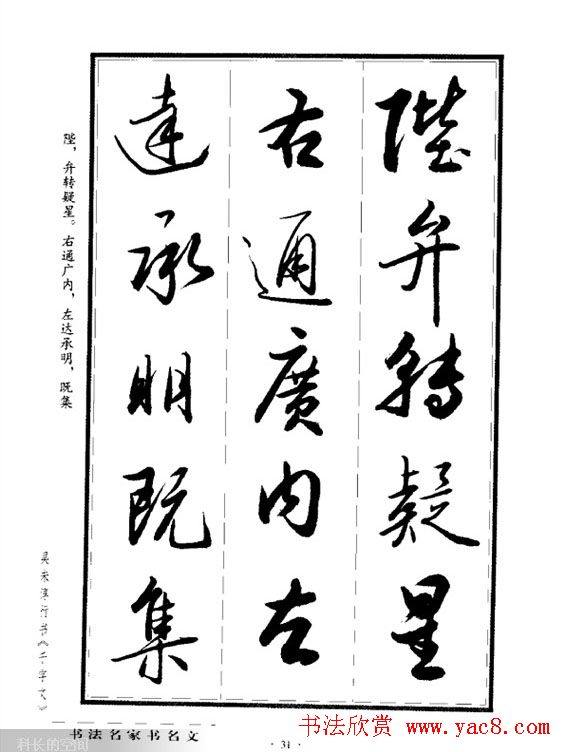 陛弁轉疑星
右通廣內左
達承明既集
陛，弁转疑星。右通广内，左达承明，既集
吴未淳行书《千字文》
书法名家书名文
· 31 ·
科长的空间
书法欣赏 www.yac8.com